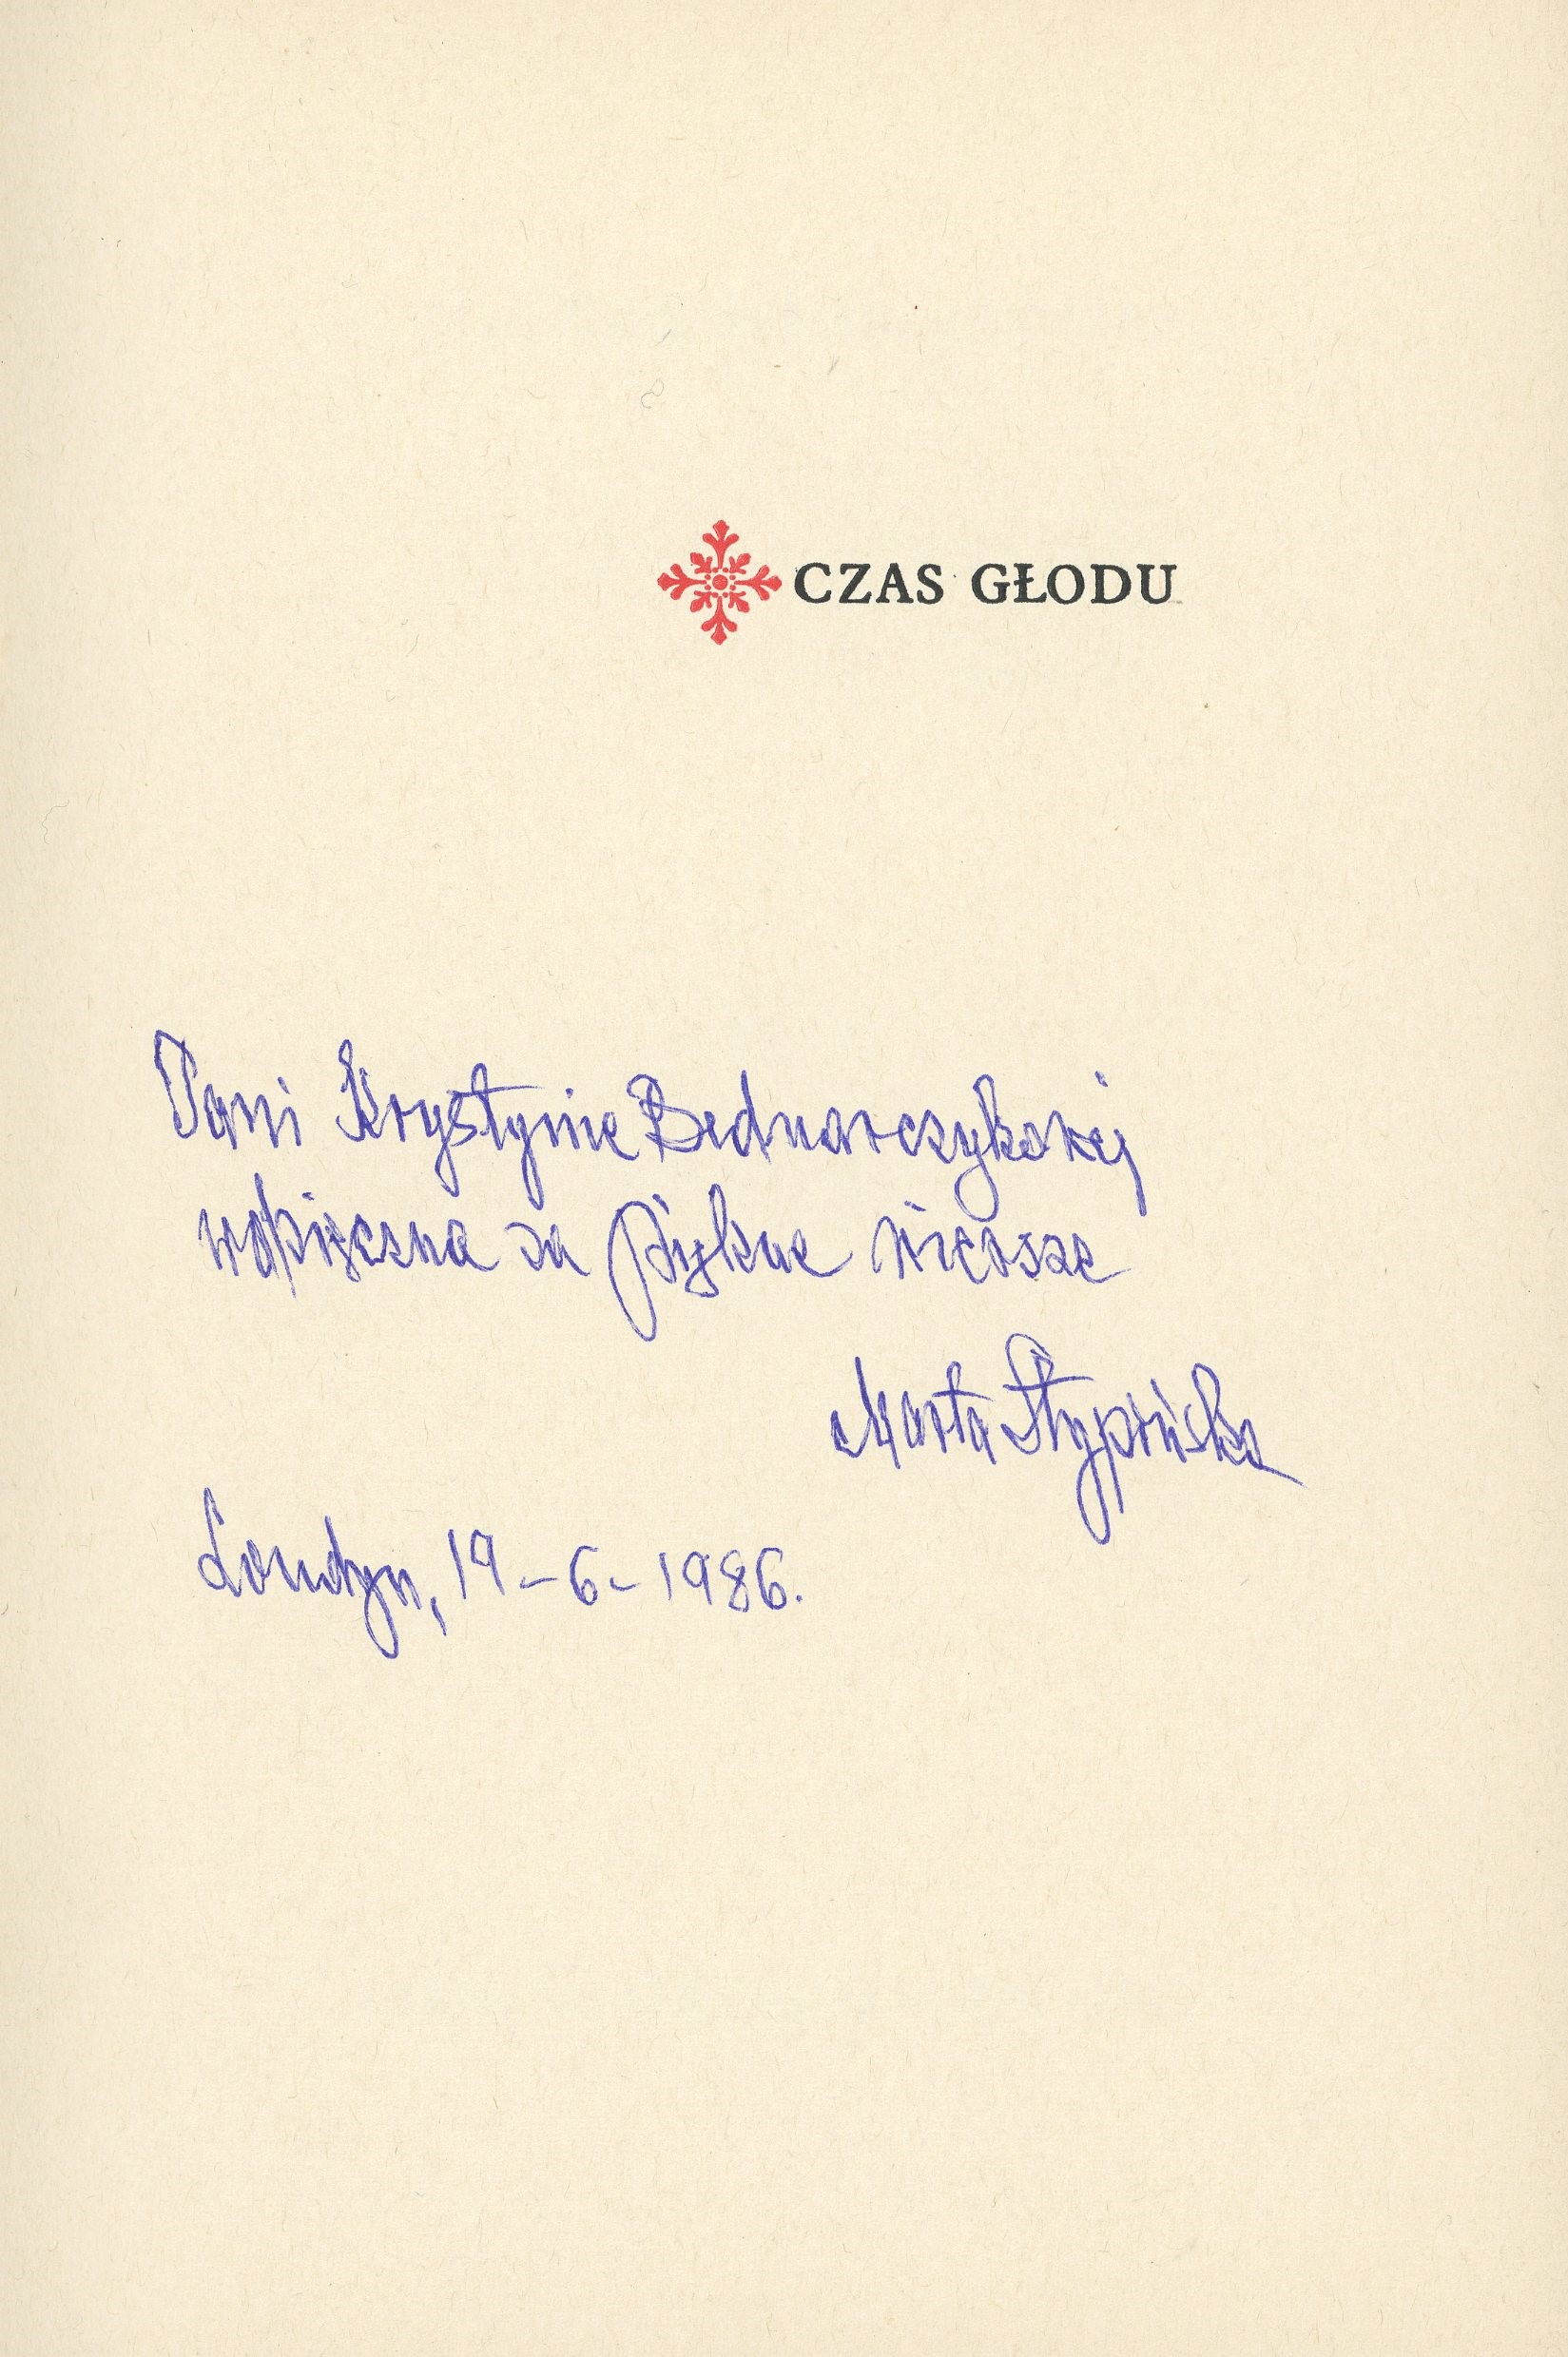 CZAS GŁODU
Pani Krystynie Bednarczykowej
wdzięczna za piękne wiersze
Marta Stypińska
Londyn, 19-6-1986.